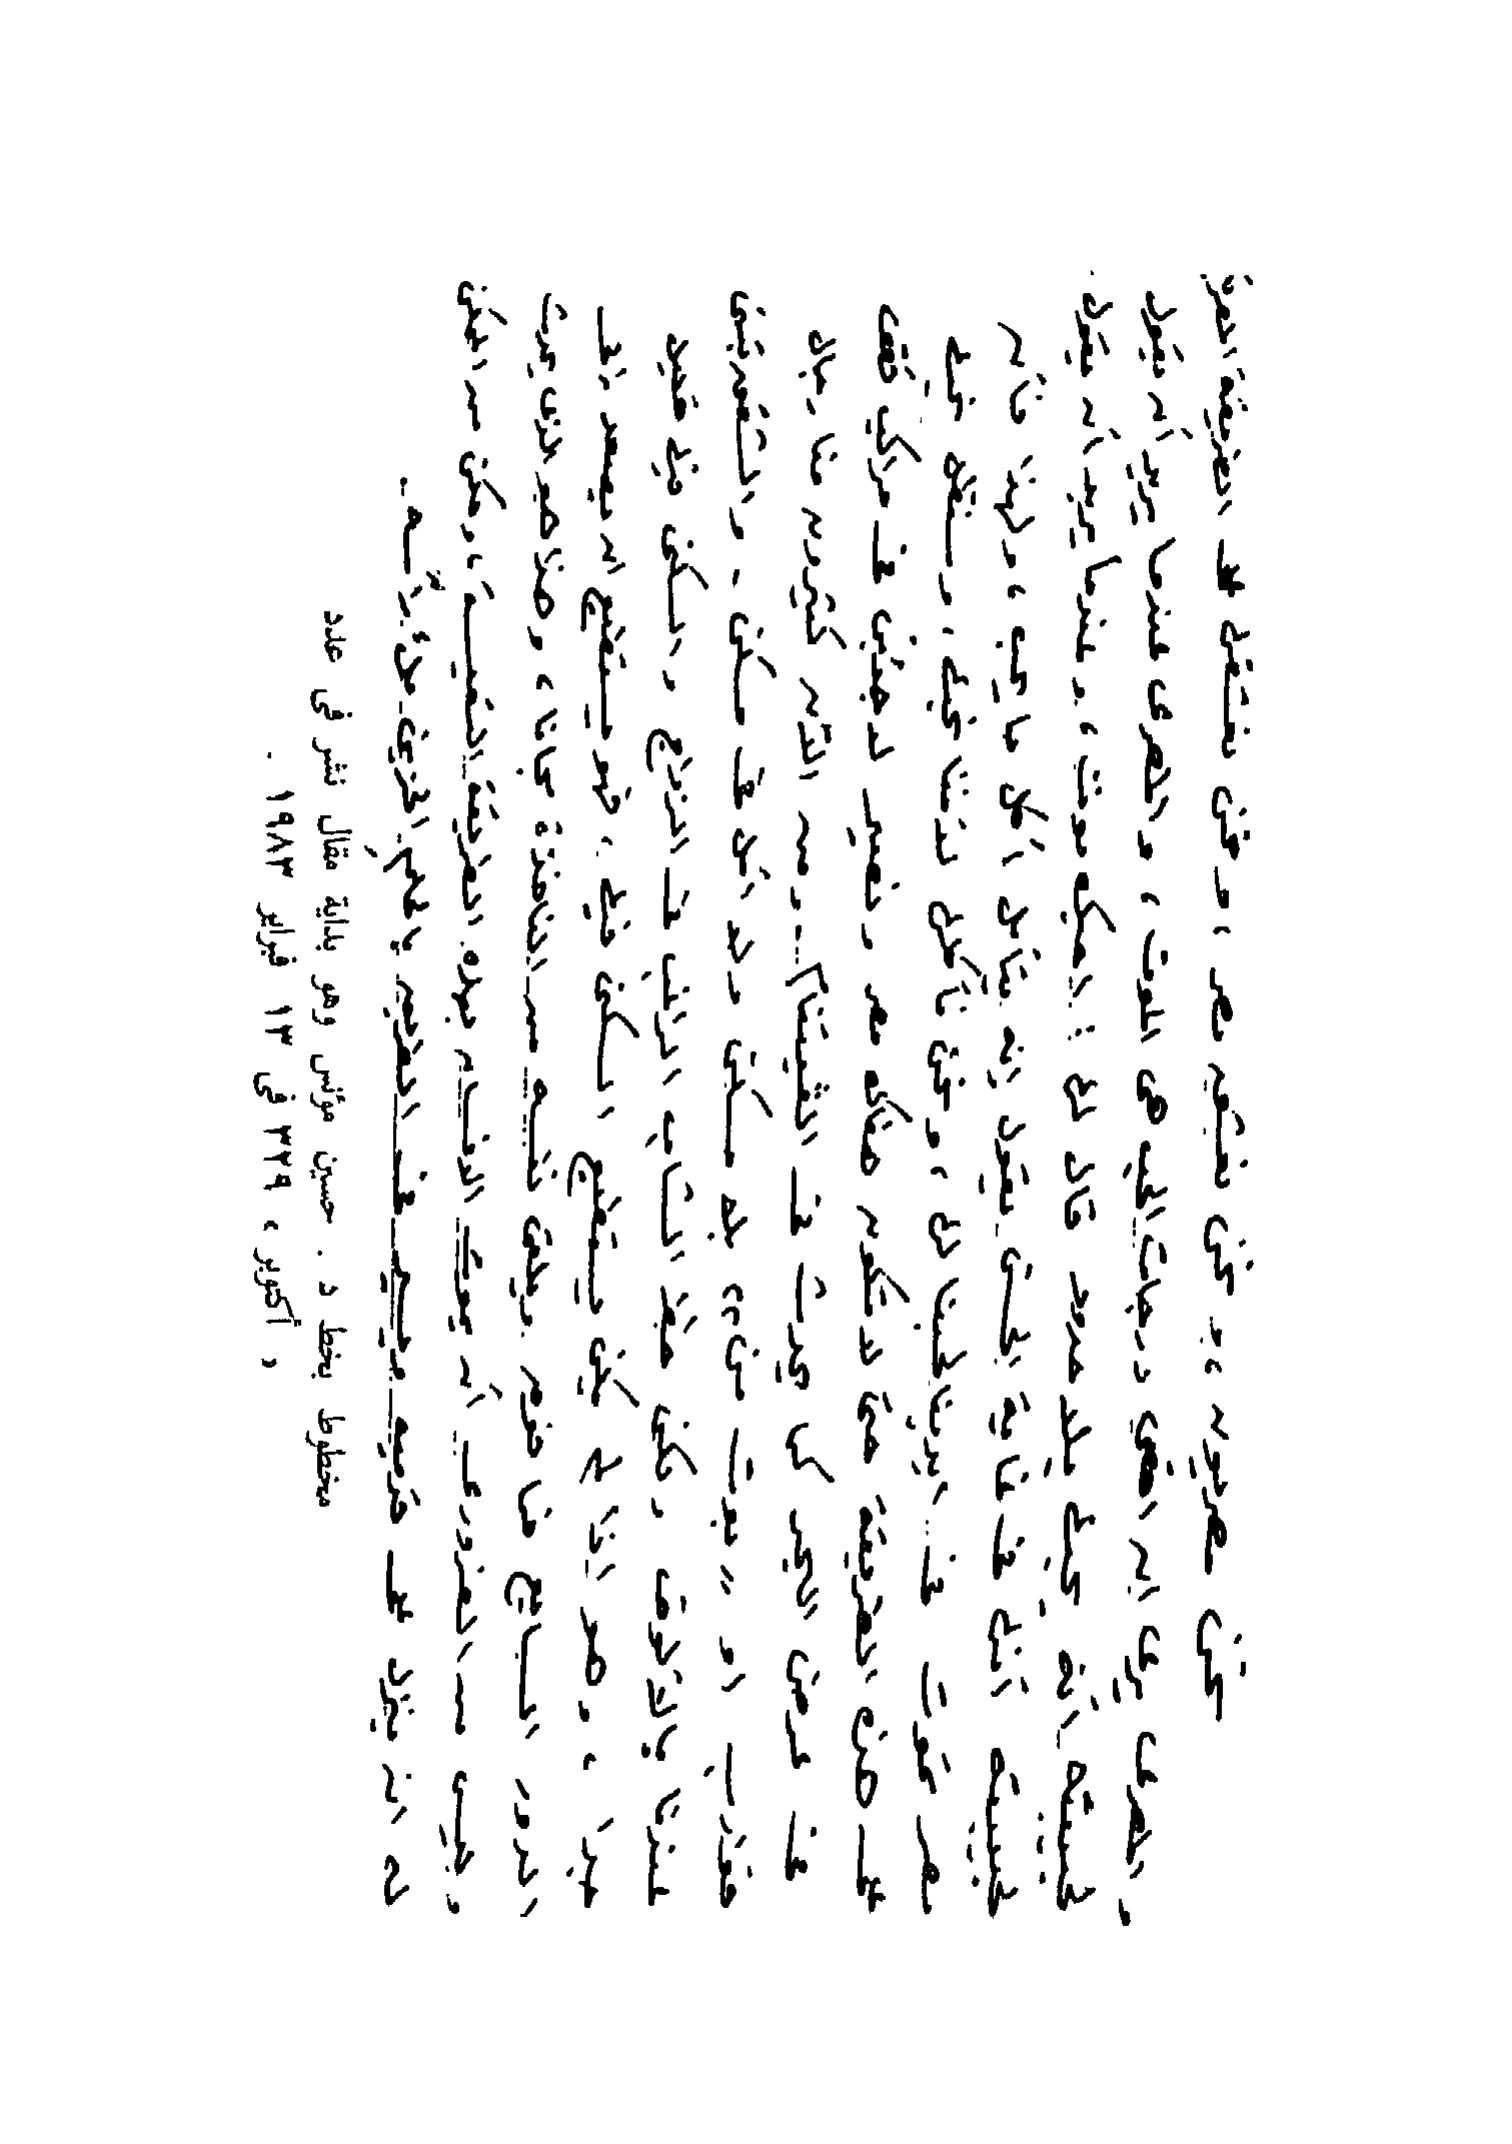 نحن مصريون ، ونحن نعشق مصر ، ونحن نعشقها على الطريقة المصرية
والمصرى يرى ان اقصى درجات الحب هى الموت ، والمصرى عندما يريد أن يقول
لحبيبته أنه يحبها بلا حدود قال لها : احبك موت ، وعندما يريد أن يقول
لحبيبته انها فى غاية الحسن يقول انه يتأملها أكل ما يجب ، ولهذا فأن
مصر تموت فى ايدينا لحبنا لها ، ونحن نأكلها لأننا نحبها ، وستظل نحبها
على هذه الطريقة حتى لا تكون هناك مصر ونصير لاجئين فى مراكب تقف
فى عرض البحر كما يحدث فى الفيتنام .. ومن الآن كثيرون منا رجال
قوارب او " بوت مين " بلا سكن ولا أمل فى سكن ، والشقق التى
عندنا بالالوف ولكن هذا الشاب الراغب فى الزواج والسكن فيها فقير
جدا ، وهو اذا لم يكن يستطيع السكن فيها ، فهو يستطيع ان يصعد الى
الدور السابع منا فوق ويلقى نفسه من النافذة مجانا ، وهذا هو الذى يحدث
وليس من الضرورى أن يموت الانسان بهذه الطريقة التعيسة ، ولكن من الممكن
له ان ينزل على قدميه ويسير فى الطريق
مخطوط بخط د . حسين مؤنس وهو بداية مقال نشر فى عدد
« أكتوبر » ٣٢٩ فى ١٣ فبراير ١٩٨٣ .